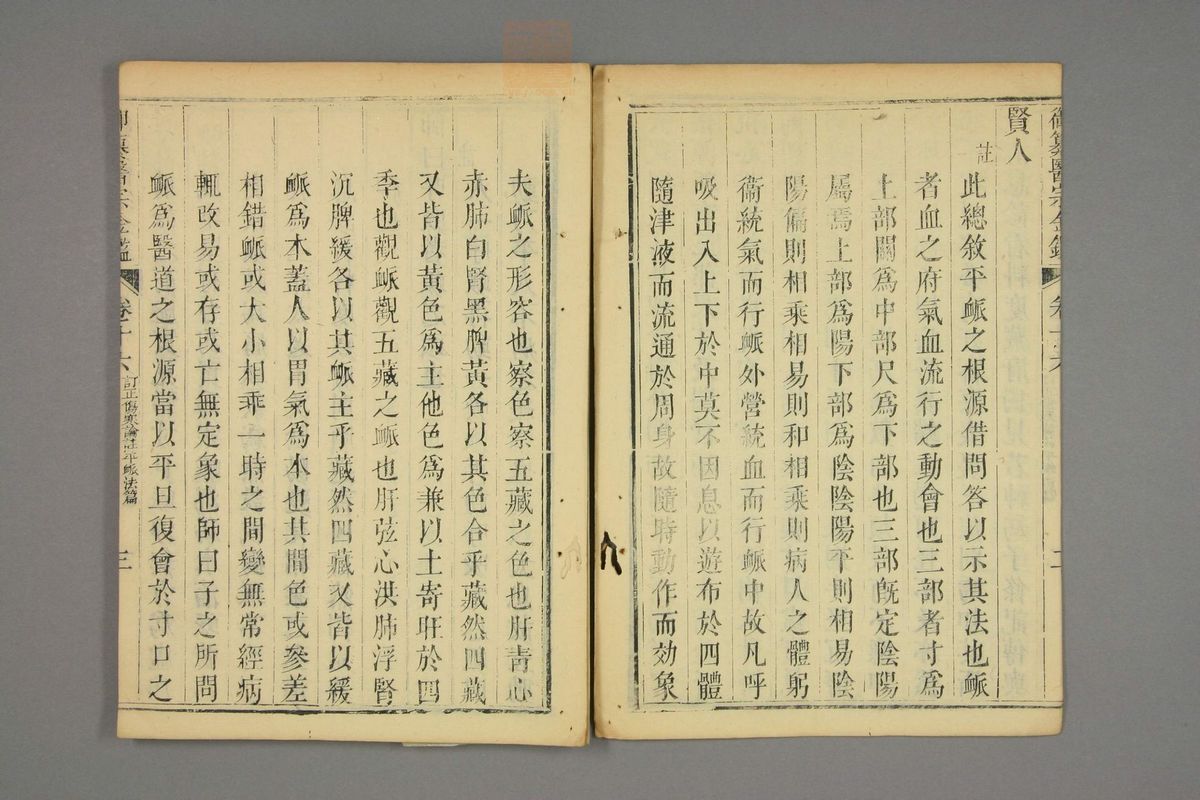 御纂醫宗金鑑 卷十六 二
賢人
註 此總敘平脈之根源借問答以示其法也脈
者血之府氣血流行之動會也三部者寸爲
上部關爲中部尺爲下部也三部旣定陰陽
屬焉上部爲陽下部爲陰陰陽平則相易陰
陽偏則相乘相易則和相乘則病人之體躬
衞統氣而行脈外營統血而行脈中故凡呼
吸出入上下於中莫不因息以遊布於四體
隨津液而流通於周身故隨時動作而効象
夫脈之形容也察色察五藏之色也肝靑心
赤肺白腎黑脾黃各以其色合乎藏然四藏
又皆以黃色爲主他色爲兼以土寄旺於四
季也觀脈觀五藏之脈也肝弦心洪肺浮腎
沉脾緩各以其脈主乎藏然四藏又皆以緩
脈爲本蓋人以胃氣爲本也其間色或參差
相錯脈或大小相乖一時之間變無常經病
輒改易或存或亡無定象也師曰子之所問
脈爲醫道之根源當以平旦復會於寸口之
御纂醫宗金鑑 卷十六 訂正傷寒論註平脈法篇 三